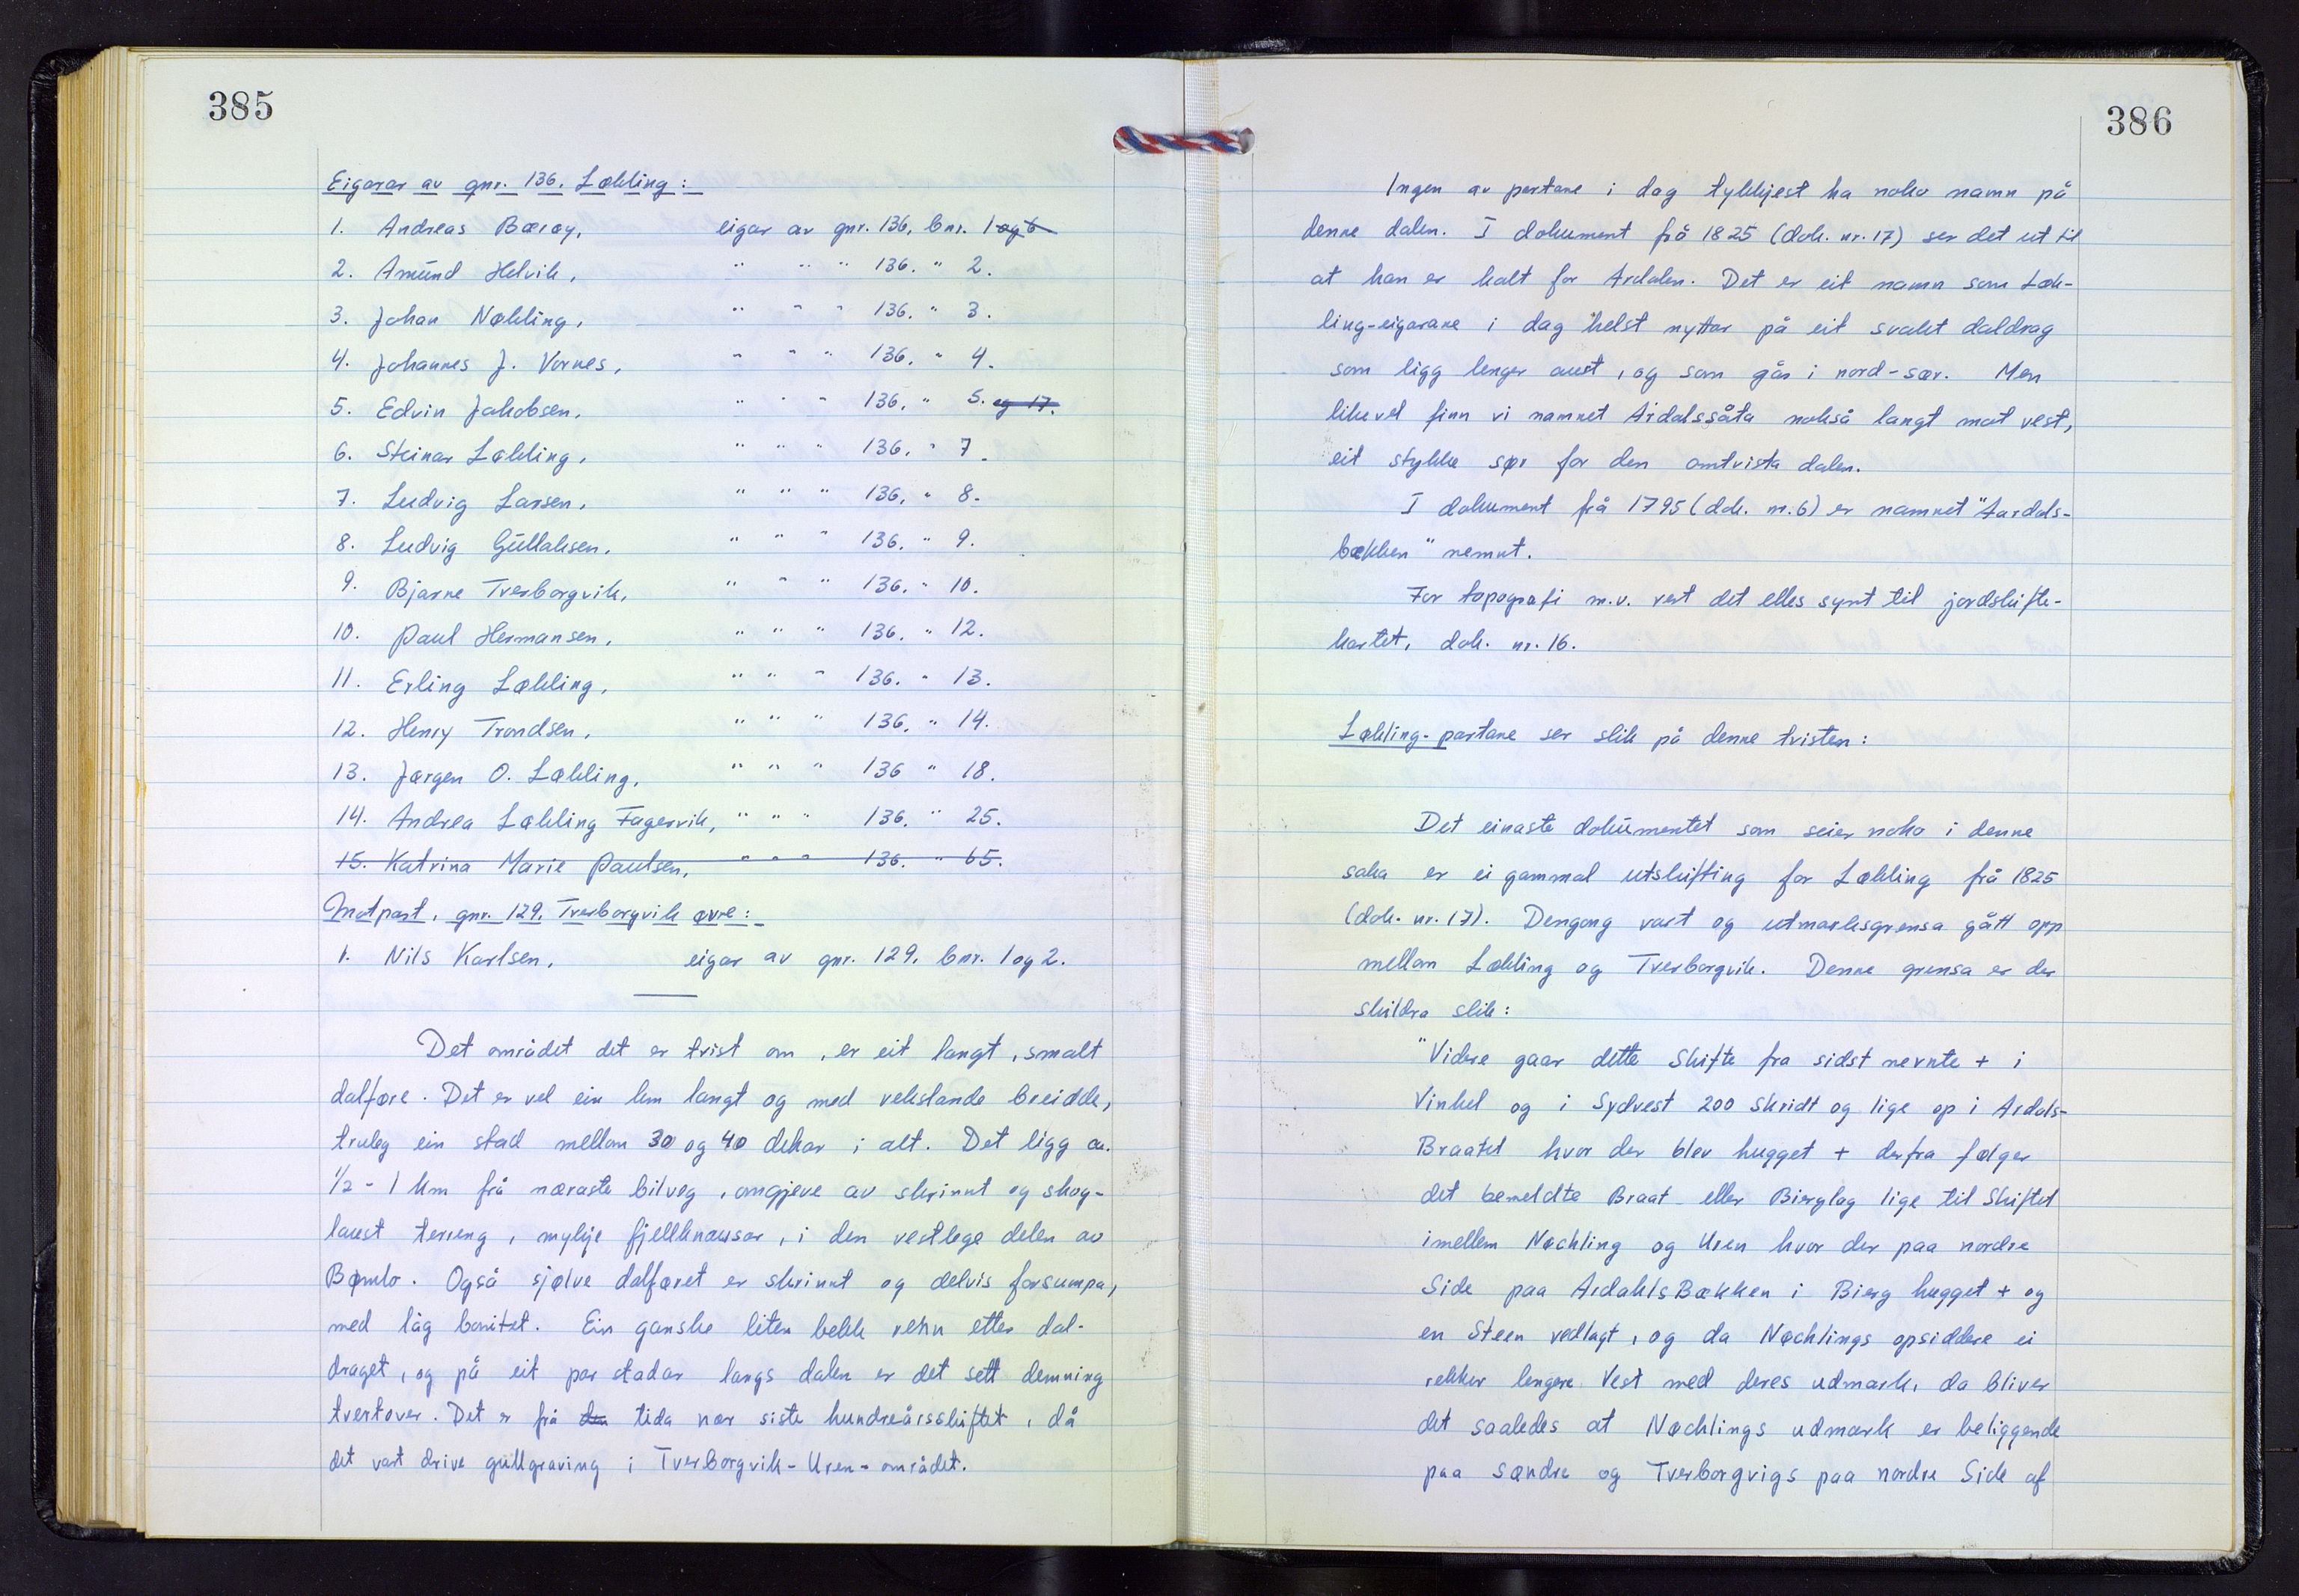 385
Eigarar av gnr. 136. Løkling:
1. Andreas Barøy, eigar av gnr. 136, bnr. 1 og 6
2. Amund Helvik, " " " 136. " 2.
3. Johan Nøkling, " " " 136. " 3.
4. Johannes J. Vornes, " " " 136. " 4.
5. Edvin Jakobsen, " " " 136. " 5. og 17.
6. Steinar Løkling, " " " 136. " 7.
7. Ludvig Larsen, " " " 136. " 8.
8. Ludvig Gullaksen, " " " 136. " 9.
9. Bjarne Tverborgvik, " " " 136. " 10.
10. Paul Hermansen, " " " 136. " 12.
11. Erling Løkling, " " " 136. " 13.
12. Henry Trondsen, " " " 136. " 14.
13. Jørgen O. Løkling, " " " 136 " 18.
14. Andrea Løkling Fagervik, " " " 136. " 25.
15. Katrina Marie Paulsen, " " " 136. " 65.
Motpart, gnr. 129. Tverborgvik øvre:
1. Nils Karlsen, eigar av gnr. 129. bnr. 1 og 2.
Det området det er tvist om, er eit langt, smalt
dalføre. Det er vel ein km langt og med vekslande breidde,
truleg ein stad mellom 30 og 40 dekar i alt. Det ligg ca.
1/2 - 1 km frå næraste bilveg, omgjeve av skrinnt og skog-
laust terreng, mykje fjellknausar, i den vestlege delen av
Bømlo. Også sjølve dalføret er skrinnt og delvis forsumpa,
med låg bonitet. Ein ganske liten bekk renn etter dal-
draget, og på eit par stadar langs dalen er det sett demning
tvertover. Det er frå den tida nær siste hundreårsskiftet, då
det vart drive gullgraving i Tverborgvik-Uren-området.
386
Ingen av partane i dag tykkjest ha noko namn på
denne dalen. I dokument frå 1825 (dok. nr. 17) ser det ut til
at han er kalt for Ardalen. Det er eit namn som Løk-
ling-eigarane i dag helst nyttar på eit svakt daldrag
som ligg lenger aust, og som går i nord-sør. Men
likevel finn vi namnet Ardalssåta nokså langt mot vest,
eit stykke sør for den omtvista dalen.
I dokument frå 1795 (dok. nr. 6) er namnet "Aardals-
bækken" nemnt.
For topografi m.v. vert det elles synt til jordskifte-
kartet, dok. nr. 16.
Løkling-partane ser slik på denne tvisten:
Det einaste dokumentet som seier noko i denne
saka er ei gammal utskifting for Løkling frå 1825
(dok. nr. 17). Dengong vart og utmarksgrensa gått opp
mellom Løkling og Tverborgvik. Denne grensa er der
skildra slik:
"Videre gaar dette Skifte fra sidst nevnte + i
Vinkel og i Sydvest 200 Skridt og lige op i Ardals-
Braatet hvor der blev hugget + derfra følger
det bemeldte Braat eller Bierglag lige til Skiftet
imellem Nøchling og Uren hvor der paa nordre
Side paa Ardahls Bækken i Bierg hugget + og
en Steen vedlagt, og da Nøchlings opsiddere ei
rekker lengere Vest med deres udmark, da bliver
det saaledes at Nøchlings udmark er beliggende
paa søndre og Tverborgvigs paa nordre Side af